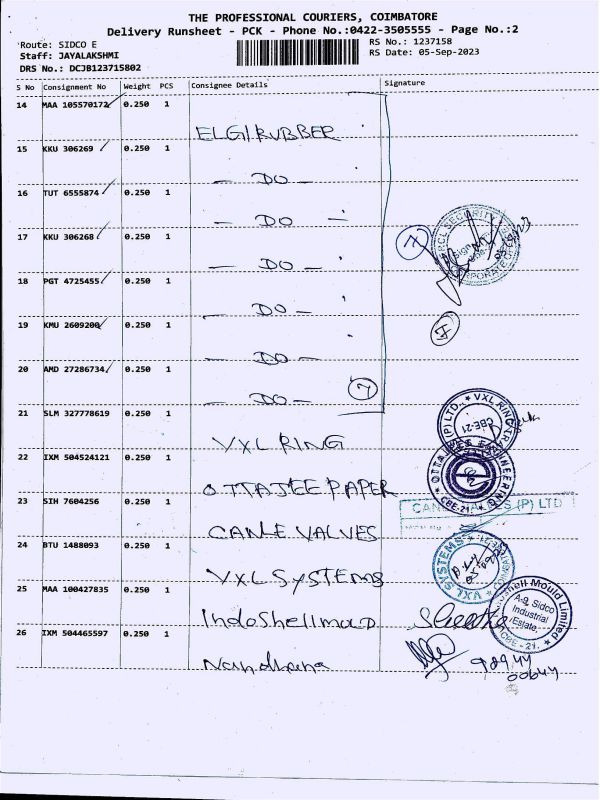 THE PROFESSIONAL COURIERS, COIMBATORE
Delivery Runsheet - PCK - Phone No.:0422-3505555 - Page No.:2
Route: SIDCO E
RS No.: 1237158
Staff: JAYALAKSHMI
RS Date: 05-Sep-2023
DRS No.: DCJB123715802
S No Consignment No Weight PCS Consignee Details Signature
14 MAA 105570172 0.250 1 ELGI RUBBER
15 KKU 306269 0.250 1 — DO —
16 TUT 6555874 0.250 1 — DO —
17 KKU 306268 0.250 1 — DO —
18 PGT 4725455 0.250 1 — DO —
19 KMU 2609200 0.250 1 — DO —
20 AMD 27286734 0.250 1 — DO —
7
21 SLM 327778619 0.250 1 VXL RING
22 IXM 504524121 0.250 1 OTTAJEE PAPER
23 SIH 7604256 0.250 1 CANLE VALVES
24 BTU 1488093 0.250 1 VXL SYSTEMS
25 MAA 100427835 0.250 1 Indoshellmould
26 IXM 504465597 0.250 1
7
SECURITY
CORPORATE
(P) LTD. * VXL RING
CBE-21
OTTAJEE ENGINEERING
CBE-21
(P) LTD
VXL SYSTEMS
Shell Mould Limited
A-9, Sidco
Industrial
Estate,
CBE - 21.
98944
00644